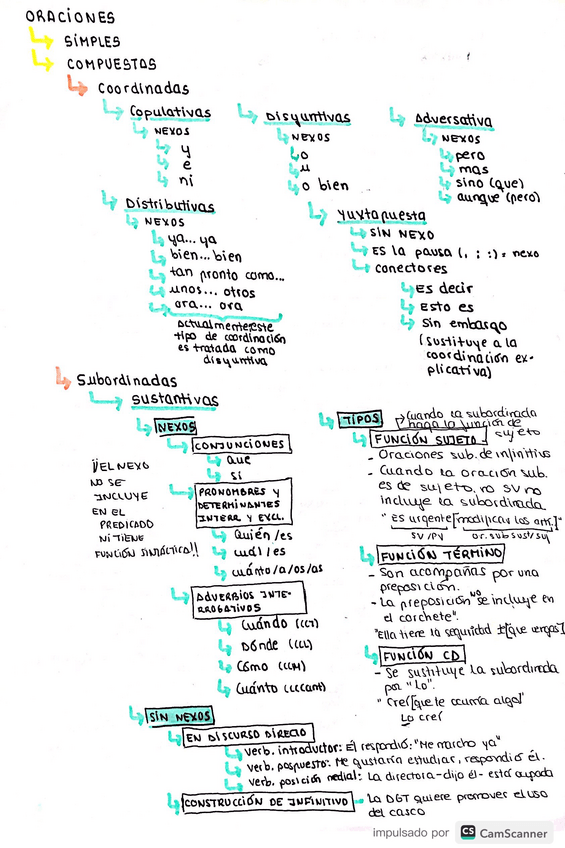 ORACIONES
SIMPLES
COMPUESTAS
Coordinadas
Copulativas
NEXOS
y
e
ni
Disyuntivas
NEXOS
o
u
o bien
Adversativa
NEXOS
pero
mas
sino (que)
aunque (pero)
Distributivas
NEXOS
ya... ya
bien... bien
tan pronto como...
unos... otros
ora... ora
Actualmente este
tipo de coordinación
es tratada como
disyuntiva
Yuxtapuesta
SIN NEXO
ES la pausa (, ; :) = nexo
conectores
Es decir
Esto es
Sin embargo
(sustituye a la
coordinación ex-
plicativa)
Subordinadas
Sustantivas
NEXOS
CONJUNCIONES
que
si
PRONOMBRES Y
DETERMINANTES
INTERR Y EXCL.
Quién/es
cuál/es
cuánto/a/os/as
ADVERBIOS INTE-
RROGATIVOS
Cuándo (CCT)
Dónde (CCL)
Cómo (CCM)
Cuánto (CCCant)
¡¡EL NEXO
NO SE
INCLUYE
EN EL
PREDICADO
NI TIENE
FUNCIÓN SINTÁCTICA!!
SIN NEXOS
EN DISCURSO DIRECTO
verb. introductor: Él respondió: "Me marcho ya"
verb. pospuesto: Me gustaría estudiar, respondió él.
verb. posición medial: La directora - dijo él - está ocupada
CONSTRUCCIÓN DE INFINITIVO
La DGT quiere promover el uso
del casco
TIPOS
Cuando la subordinada
haga la función de
sujeto
FUNCIÓN SUJETO
- Oraciones sub. de infinitivo
- Cuando la oración sub.
es de sujeto, no SV no
incluye la subordinada.
"Es urgente [modificar los arti.]"
SV/PV
or. sub sust/suj
FUNCIÓN TÉRMINO
- Son acompañas por una
preposición.
- La preposición no se incluye en
el corchete".
"Ella tiene la seguridad [que vengas]
FUNCIÓN CD
- Se sustituye la subordinada
por "lo".
"Creí [que te ocurría algo]"
Lo creí
impulsado por CS CamScanner